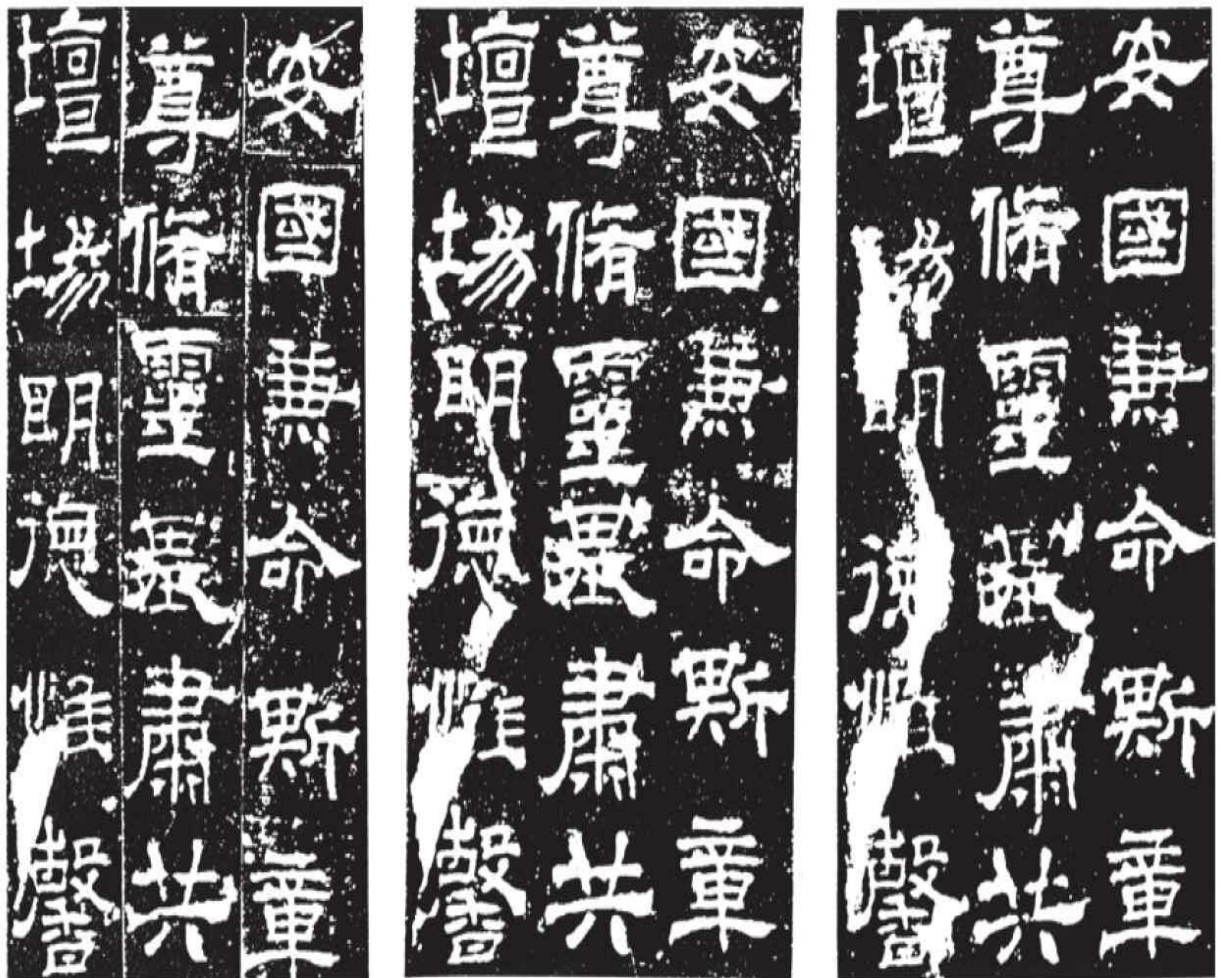 安國兼命斯章
尊脩靈基肅共
壇場明德惟馨
安國兼命斯章
尊脩靈基肅共
壇場明德惟馨
安國兼命斯章
尊脩靈基肅共
壇場明德惟馨